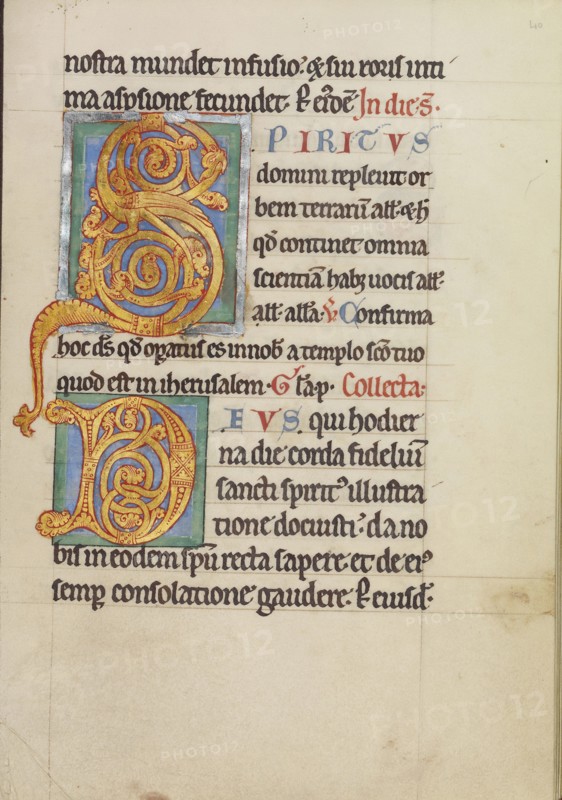 40
nostra mundet infusio: & sui roris inti
ma aspsione fecundet. P eūdē In die S.
SPIRITVS
domini repleuit or
bem terrarū all. & h
qd continet omnia
scientiā hab& uocis all.
all. alla. V Confirma
hoc ds qd opatus es innob a templo scō tuo
quod est in iherusalem. Gla. p. Collecta:
DEVS qui hodier
na die corda fideliū
sancti spirit9 illustra
tione docuisti: da no
bis in eodem spū recta sapere. et de ei9
semp consolatione gaudere. P eiusd.